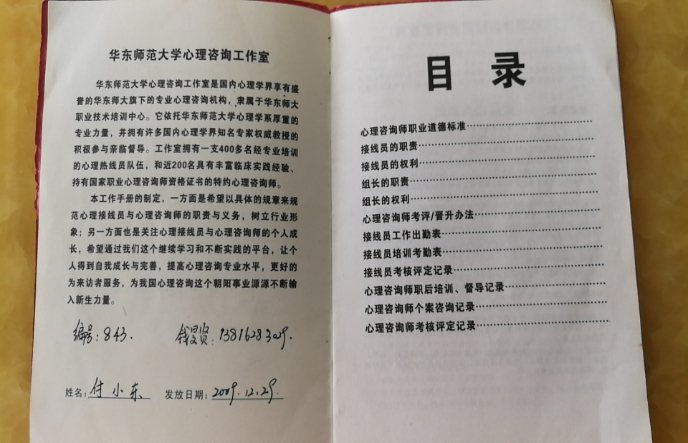 华东师范大学心理咨询工作室
华东师范大学心理咨询工作室是国内心理学界享有盛
誉的华东师大旗下的专业心理咨询机构，隶属于华东师大
职业技术培训中心。它依托华东师范大学心理学系厚重的
专业力量，并拥有许多国内心理学界知名专家权威教授的
积极参与亲临督导。工作室拥有一支400多名经专业培训
的心理热线员队伍，和近200名具有丰富临床实践经验、
持有国家职业心理咨询师资格证书的特约心理咨询师。
本工作手册的制定，一方面是希望以具体的规章来规
范心理接线员与心理咨询师的职责与义务，树立行业形
象；另一方面也是关注心理接线员与心理咨询师的个人成
长，希望通过我们这个继续学习和不断实践的平台，让个
人得到自我成长与完善，提高心理咨询专业水平，更好的
为来访者服务，为我国心理咨询这个朝阳事业源源不断输
入新生力量。
编号：843.
姓名：付小东 发放日期：2009.12.29.
目录
心理咨询师职业道德标准
接线员的职责
接线员的权利
组长的职责
组长的权利
心理咨询师考评/晋升办法
接线员工作出勤表
接线员培训考勤表
接线员考核评定记录
心理咨询师职后培训、督导记录
心理咨询师个案咨询记录
心理咨询师考核评定记录